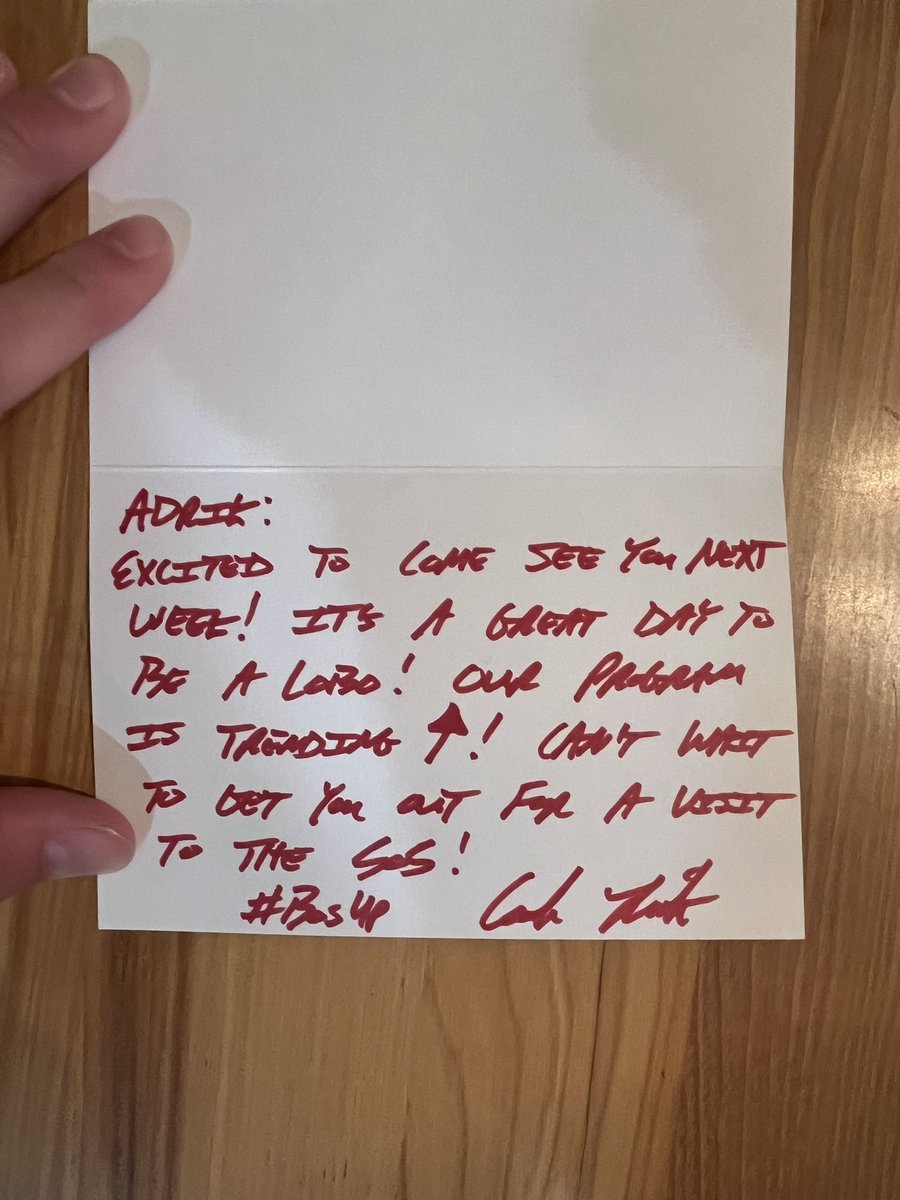 ADRIK:
EXCITED TO COME SEE YOU NEXT
WEEK! IT'S A GREAT DAY TO
BE A LOBO! OUR PROGRAM
IS TRENDING ↑! CAN'T WAIT
TO GET YOU OUT FOR A VISIT
TO THE 505!
#BosUp